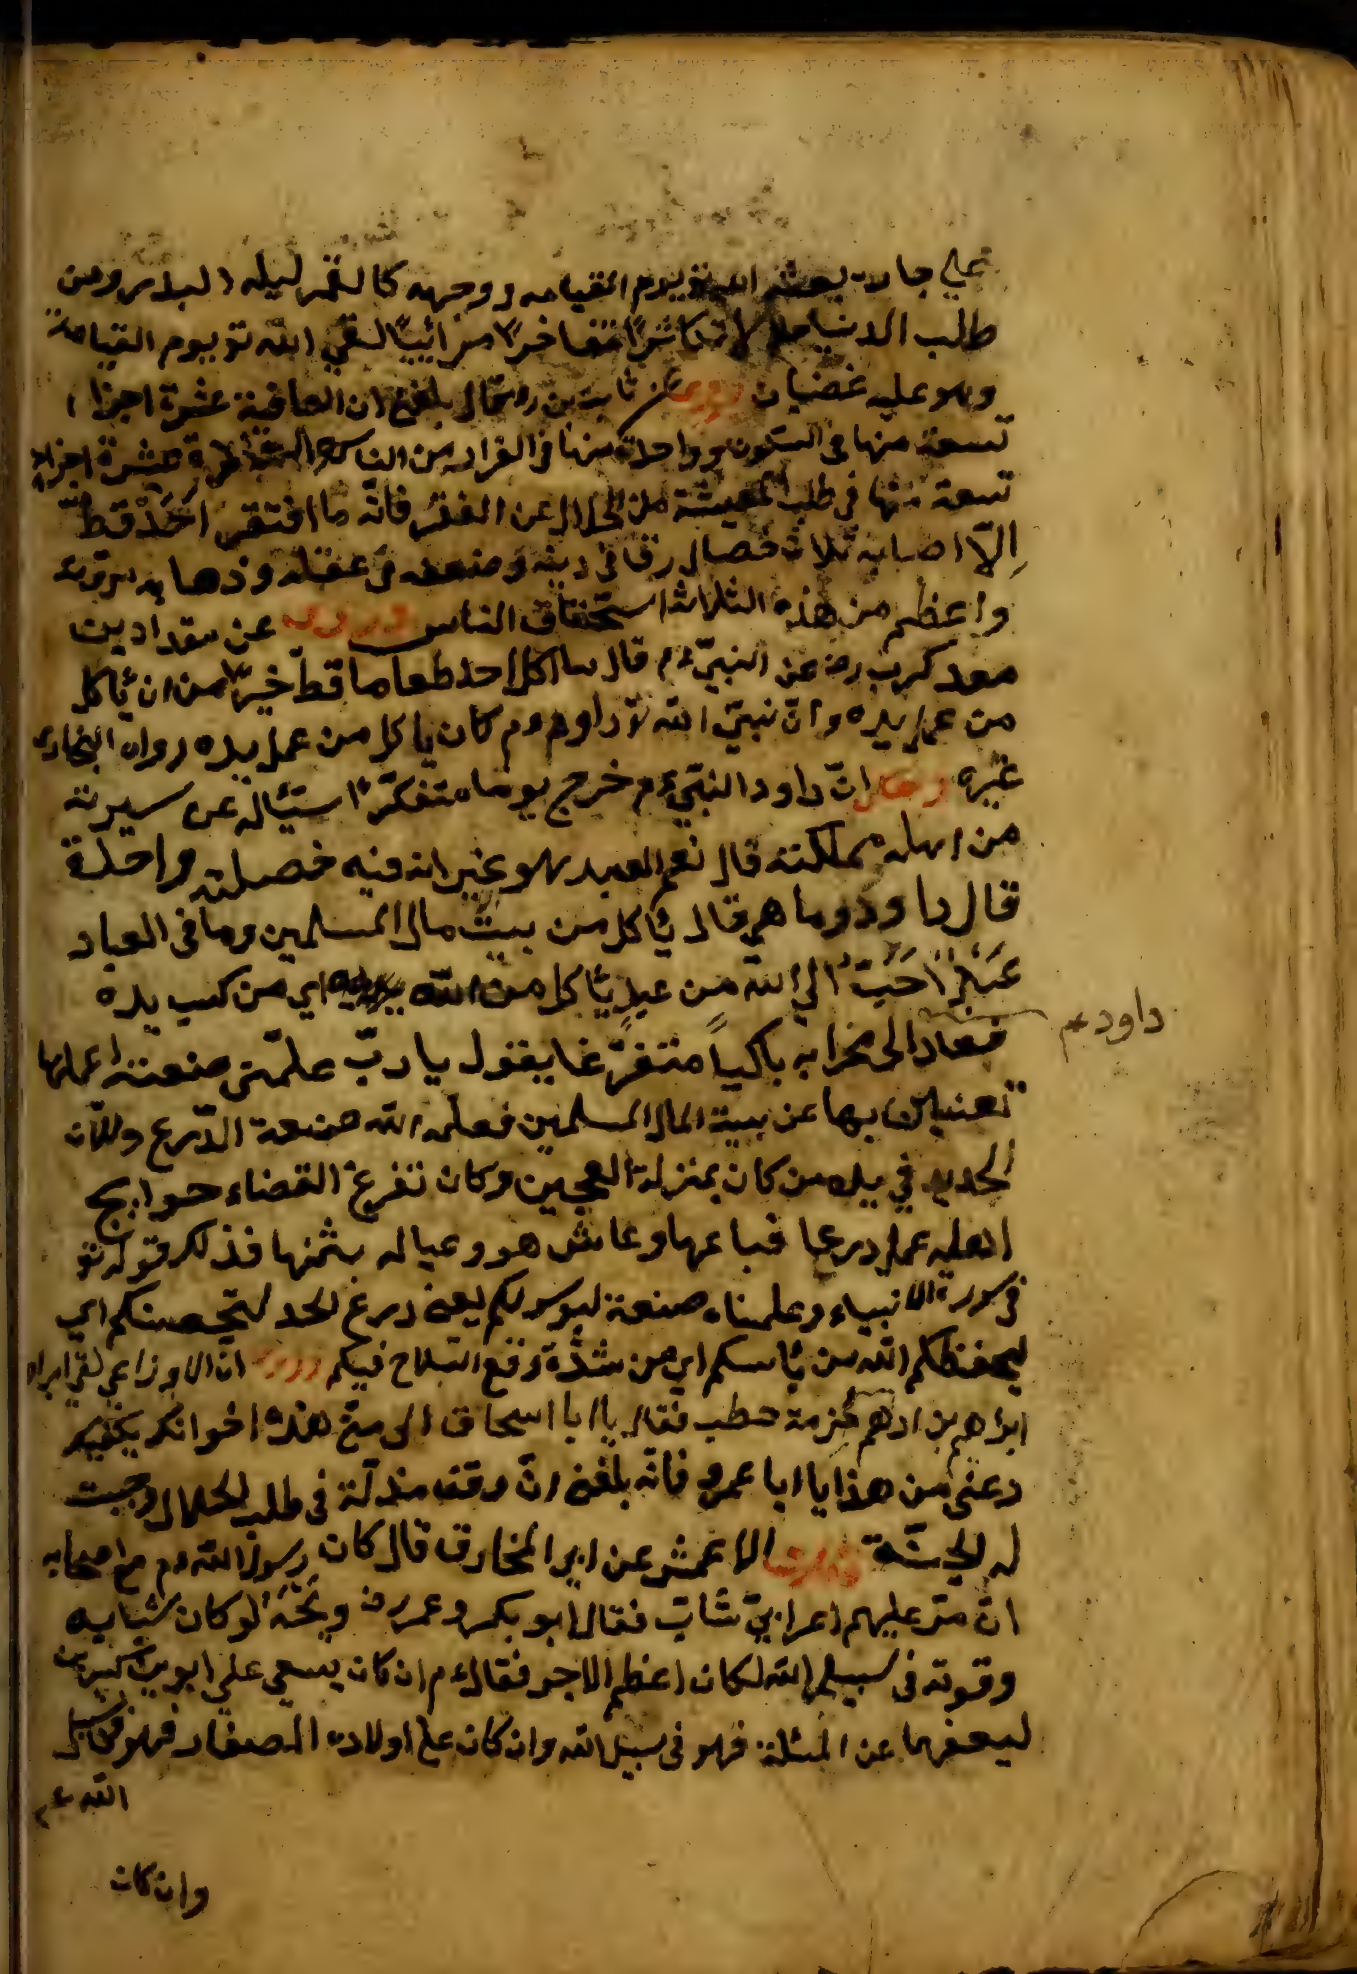 على جاره يبعثه الله تع يوم القيامه ووجهه كالقمر ليله البدر ومن
طلب الدنيا حلالا متكاثرًا متفاخرًا مرائيًا لقي الله تع يوم القيامة
وهو عليه غضبان وروى عن ثابت بن قال بلغني ان العافية عشرة اجزاء
تسعة منها في السكوت وواحدة منها في الفرار من الناس عشرة اجزاء
تسعة منها في طلب المعيشة من الحلال عن الفقر فانّه ما افتقر احَدٌ قطّ
اِلّا اصابه ثلاث خصال رقا في دينه وضعف في عقله وذهابه مروته
واعظم من هذه الثلاث استخفاف الناس وروى عن مقداد بن
معد كرب رض عن النبيّ عم قال ما اكل احد طعاما قطّ خيرًا من ان يأكل
من عمل يده وانّ نبيّ الله داود عم كان ياكل من عمل يده رواه البخارى
غيره وحكى انّ داود النبيّ عم خرج يوما متفكرًا يسئال عن سيرته
من اهله مملكته قال نعم العبد هو غير انه فيه خصلته واحدة
قال داود وما هي قال يأكل من بيت مال المسلمين وما في العباد
عَبْدٌ اَحَبُّ الى الله من عبدٍ يأكل من اي من كسب يده
فعاد الى محرابه باكيًا متفرّغا يقول يا ربّ علّمنى صنعته اعملها داود عم
تغنيني بها عن بيت المال المسلمين فعلّمه الله صنعة الدّرع وللان
الحديد في يده من كان بمنزلة العجين وكان تفرغ القضاء حوايج
اهليه عمل درعا فباعها وعاش هو وعياله بثمنها فذلك قوله تع
في سورة الانبياء وعلمناه صنعة لبوس لكم يعنى درع لحد لتحصنكم اي
ليحفظكم الله من بأسكم اي من شدّة وقع السلاح فيكم وروى انّ الاوزاعي لقي ابراه
ابراهيم بن ادهم حُزمة حطب فقال يا ابا اسحاق الى متى هذه اخوانك يكفيك
دعني من هذا يا ابا عمرو فانّه بلغنى انّ وقف مذلّة في طلب الحلال وجبت
له الجنّة الاعمش عن ابي المخارق قال كان رسول الله عم مع اصحابه
انّ مرّ عليهم اعرابيّ شابّ فقال ابو بكر وعمر رض ويحَهُ لو كان شبابه
وقوته في سبيل الله لكان اعظم الاجر فقال عم ان كان يسعى على ابويه كبيرين
ليعفهما عن المسئلة فهو في سبيل الله وان كان على اولاده الصغار فهو في سبيل
الله عم
وان كان